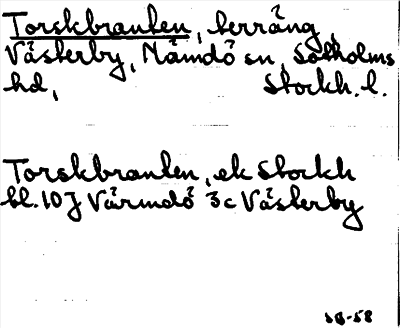 Torskbranten, terräng,
Västerby, Nämdö sn, Sotholms
hd, Stockh. l.
Torskbranten, ek Stockh
bl. 10J Värmdö 3c Västerby